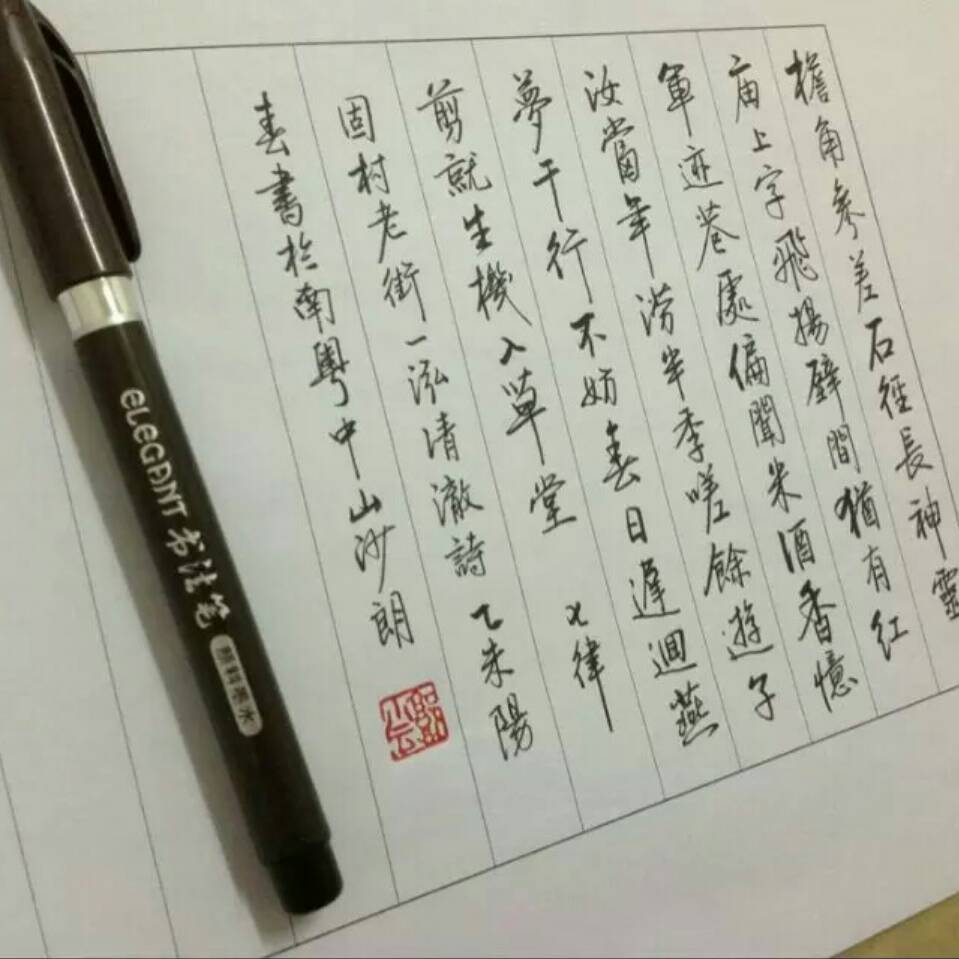 檐角參差石徑長神靈
庙上字飛揚壁間猶有红
軍迹巷處偏聞米酒香憶
汝當年澇半季嗟餘遊子
夢千行不妨春日遲迴燕
剪就生機入草堂 七律
固村老街一泓清澈詩 乙未陽
春書於南粤中山沙朗
ELEGANT 书法笔 颜料墨水